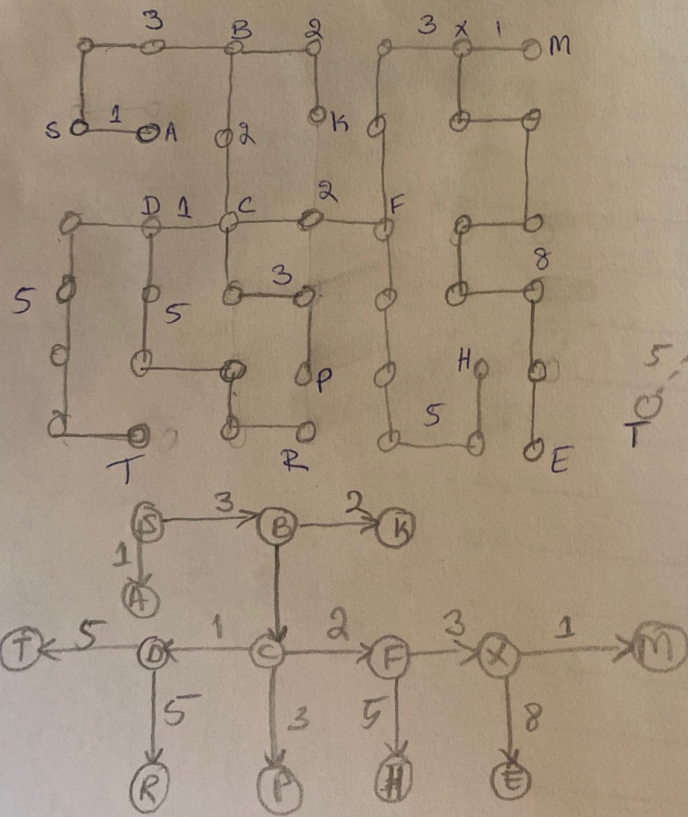 3 B 2 3 X 1 M
S 1 A 2 K
D 1 C 2 F
5 5 3 8
P H 5
5 T
T R E
S 3 B 2 K
1
A
T 5 D 1 C 2 F 3 X 1 M
5 3 5 8
R P H E